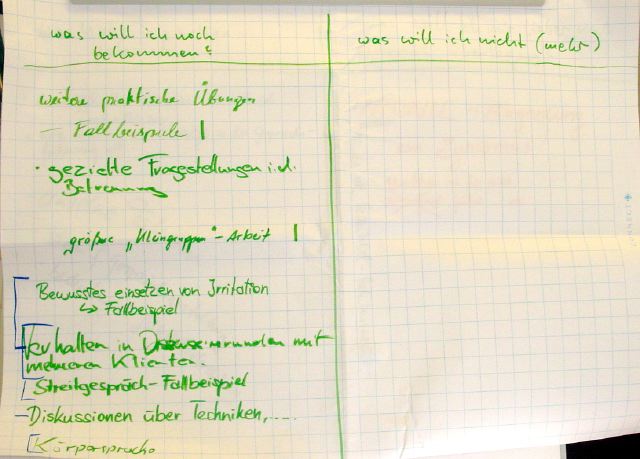 was will ich noch
bekommen?
was will ich nicht (mehr)
weitere praktische Übungen
- Fallbeispiele |
· gezielte Fragestellungen i.d.
Betreuung
größere „Kleingruppen"-Arbeit |
Bewusstes einsetzen von Irritation
↳ Fallbeispiel
Verhalten in Diskussionsrunden mit
mehreren Klienten.
Streitgespräch-Fallbeispiel
- Diskussionen über Techniken,....
Körpersprache